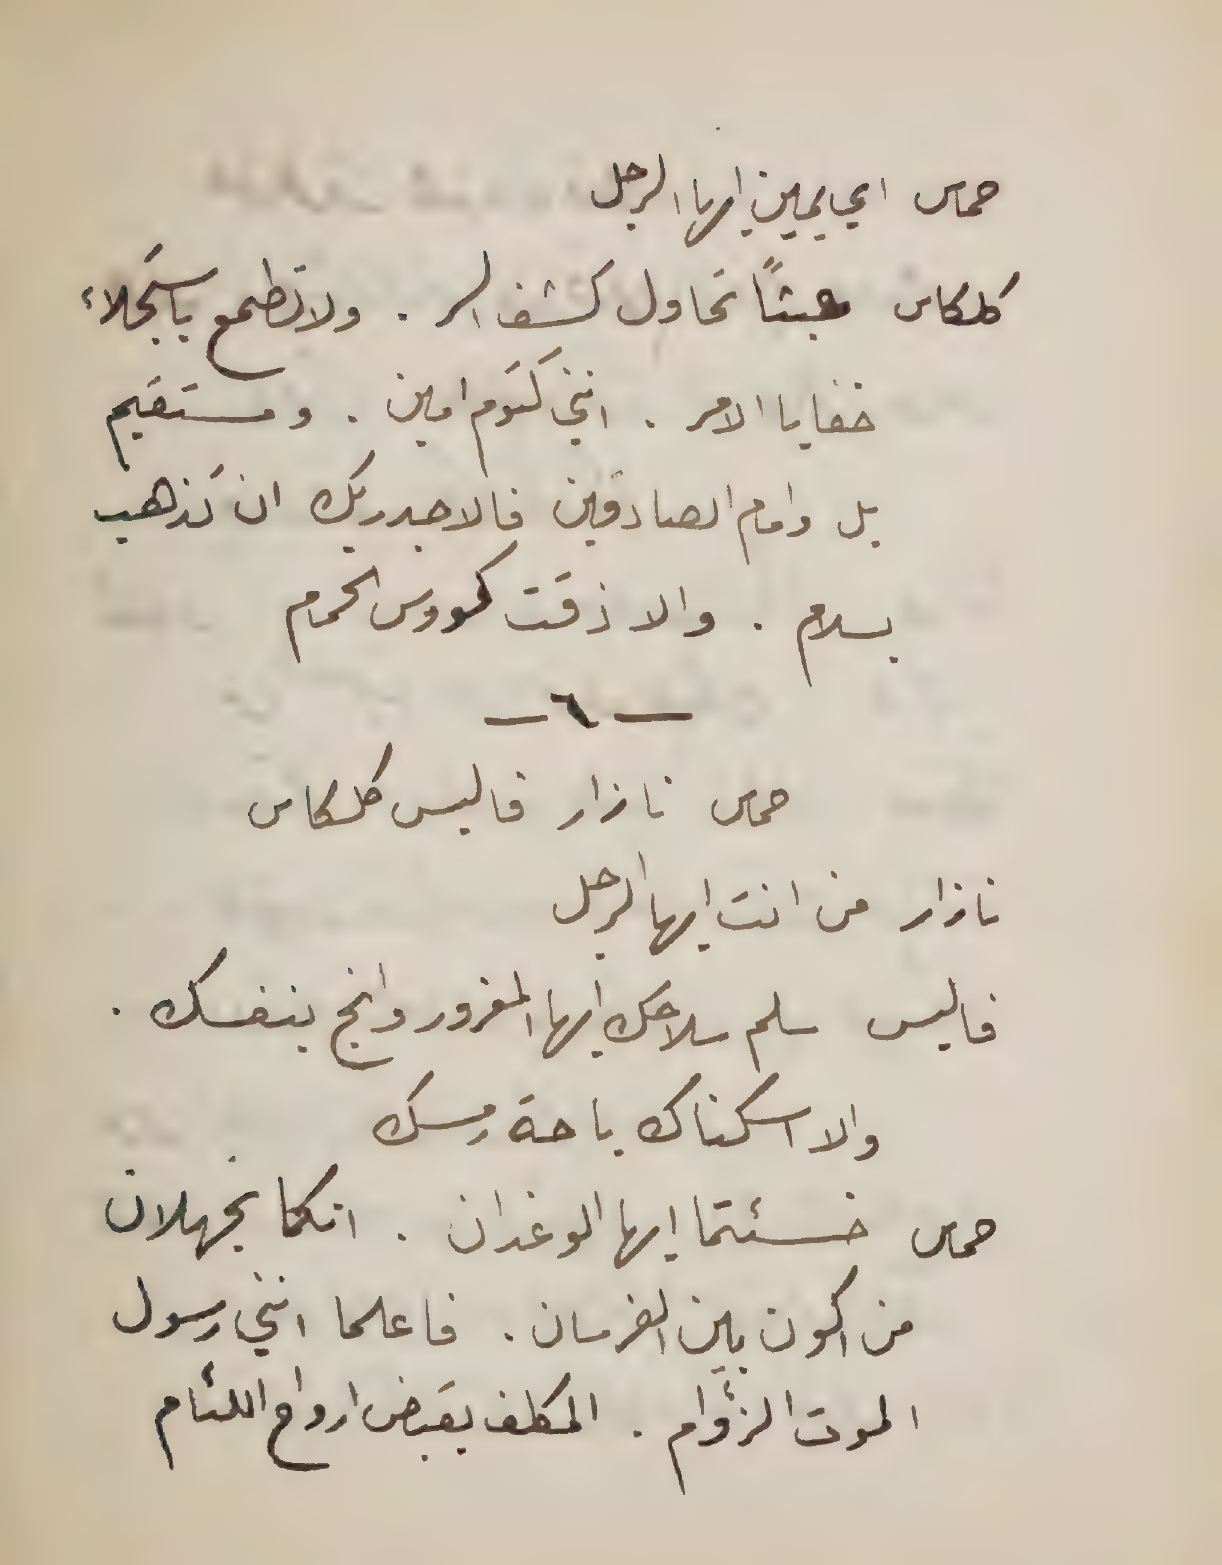 حماس اي يمين ايها الرجل
كلكاس عبثاً تحاول كشف السر . ولا تطمع باستجلاء
خفايا الامر . انني كتوم امين . ومستقيم
بل وامام الصادقين فالاجدر بك ان تذهب
بسلام . والا ذقت كووس الحمام
— ٦ —
حماس نازار فاليس كلكاس
نازار من انت ايها الرجل
فاليس سلم سلاحك ايها المغرور وانج بنفسك .
والا اسكناك باحة رمسك
حماس خسئتما ايها الوغدان . انكما تجهلان
من اكون بين الفرسان . فاعلما انني رسول
الموت الزؤام . المكلف بقبض ارواح اللئام